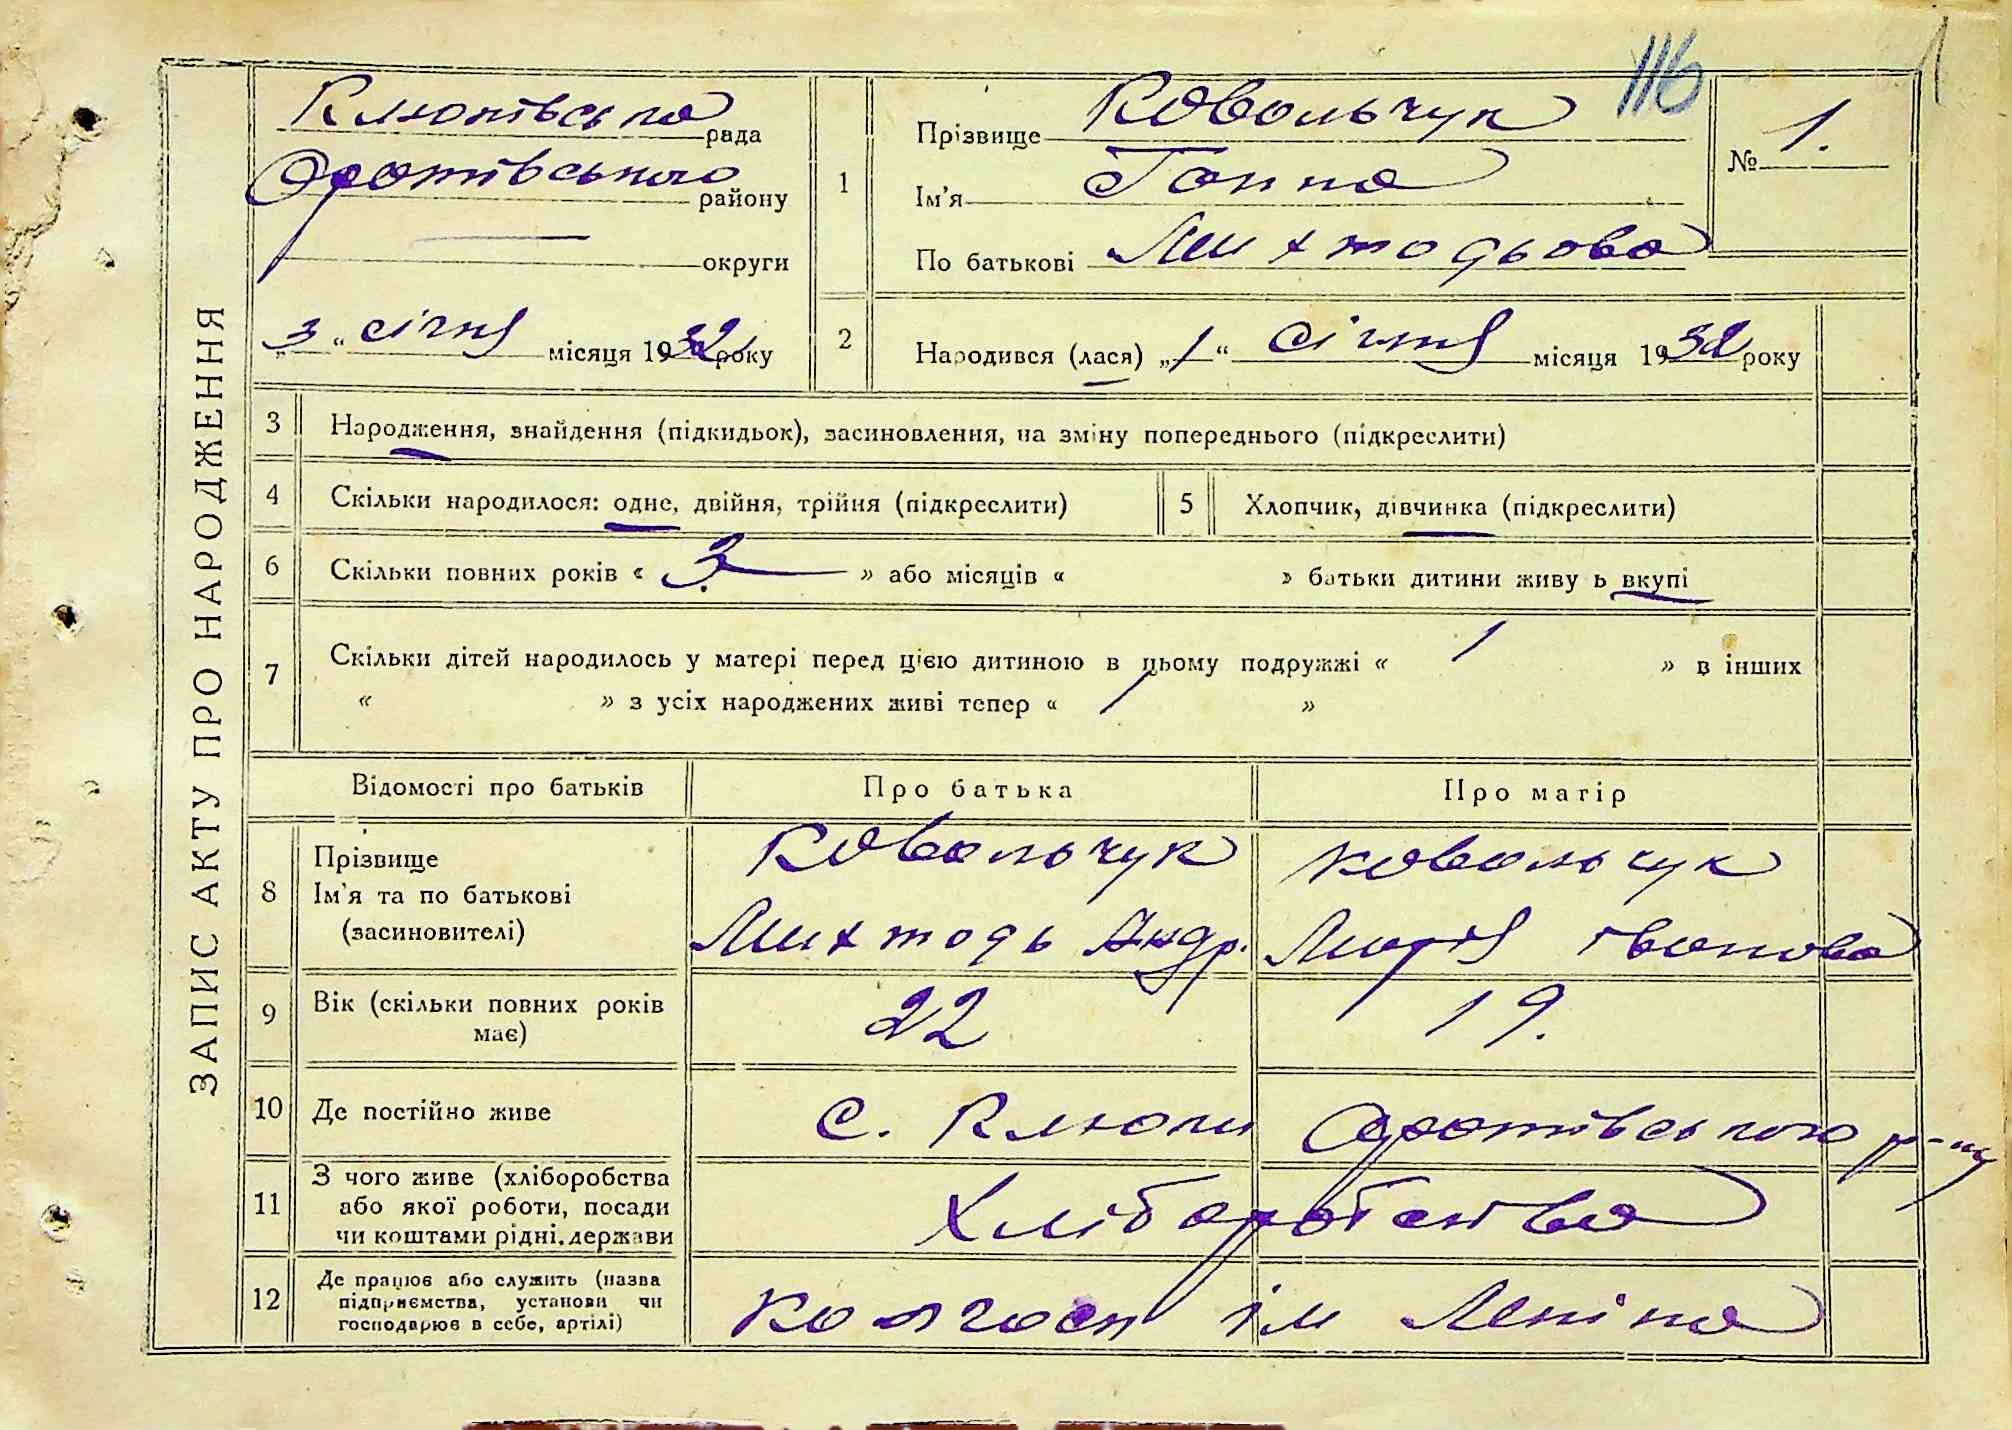 116
ЗАПИС АКТУ ПРО НАРОДЖЕННЯ
Клюківська рада
Оратівського району
округи
„3“ січня місяця 1932 року
1
Прізвище Ковальчук
Ім'я Ганна
По батькові Михтодьова
№ 1.
2
Народився (лася) „1“ січня місяця 1932 року
3 Народження, знайдення (підкидьок), засиновлення, на зміну попереднього (підкреслити)
4 Скільки народилося: одне, двійня, трійня (підкреслити)
5 Хлопчик, дівчинка (підкреслити)
6 Скільки повних років « 3 » або місяців « » батьки дитини живу ь вкупі
7 Скільки дітей народилось у матері перед цією дитиною в цьому подружжі « 1 » в інших
« » з усіх народжених живі тепер « 1 »
Відомості про батьків Про батька Про матір
8 Прізвище Ковальчук Ковальчук
Ім'я та по батькові Михтодь Андр. Марія Іванова
(засиновителі)
9 Вік (скільки повних років 22 19.
має)
10 Де постійно живе с. Клюки Оратівського р-ну
11 З чого живе (хліборобства Хліборобство
або якої роботи, посади
чи коштами рідні, держави
12 Де працює або служить (назва колгосп ім Леніна
підприємства, установи чи
господарює в себе, артілі)